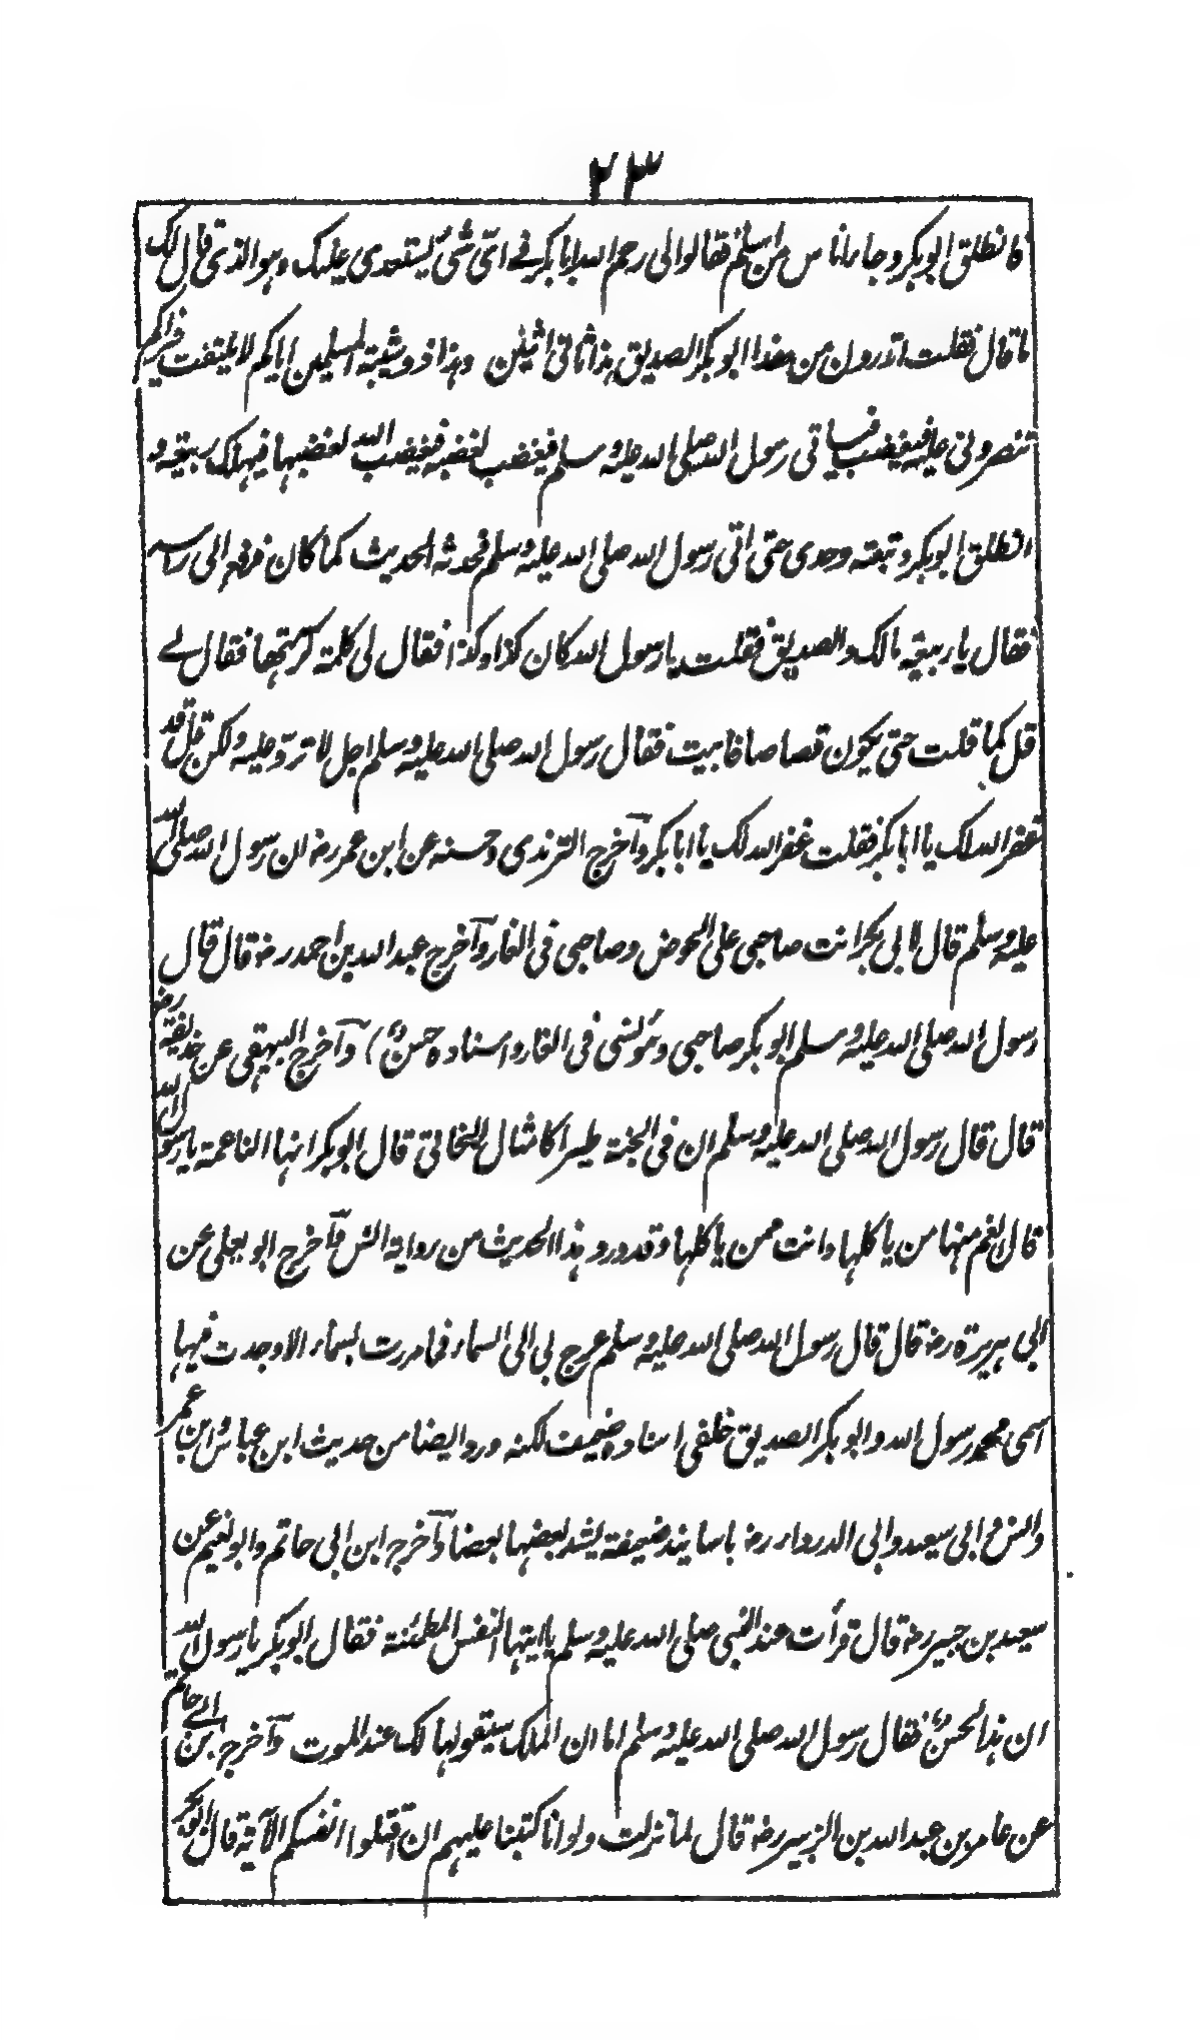 ٢٣
فانطلق ابوبکر وجاء اناس من اسلم فقالوا لی رحم الله ابابکر فے ای شئ یستعدی علیک وهو الذی قال لک
ما قال فقلت اتدرون من هذا ابوبکر الصدیق هذا ثانی اثنین وهذا ذو شیبة المسلمین ایاکم لا یلتفت فیراکم
تنصرونی علیه فیغضب فیاتی رسول الله صلی الله علیه وسلم فیغضب لغضبه فیغضب الله لغضبهما فیهلک ربیعة و
انطلق ابوبکر وتبعته وحدی حتی اتی رسول الله صلی الله علیه وسلم فحدثه الحدیث کما کان فرفع الی راسه
فقال یا ربیعة مالک والصدیق فقلت یا رسول الله کان کذا وکذا فقال لی کلمة کرهتها فقال لے
قل کما قلت حتی یکون قصاصا فابیت فقال رسول الله صلی الله علیه وسلم اجل لا ترد علیه ولکن قل قد
غفر الله لک یا ابابکر فقلت غفر الله لک یا ابابکر وآخرج الترمذی وحسنه عن ابن عمر رض ان رسول الله صلی الله
علیه وسلم قال لابی بکر انت صاحبی علی الحوض وصاحبی فی الغار وآخرج عبد الله بن احمد رض قال قال
رسول الله صلی الله علیه وسلم ابوبکر صاحبی ومونسی فی الغار واسناده حسن) وآخرج البیهقی عن حذیفة رض
قال قال رسول الله صلی الله علیه وسلم ان فی الجنة طیرا کامثال البخاتی قال ابوبکر انها الناعمة یا رسول الله
قال انعم منها من یاکلها وانت ممن یاکلها وقد ورد هذا الحدیث من روایة انس وآخرج ابو یعلی عن
ابی هریرة رض قال قال رسول الله صلی الله علیه وسلم عرج بی الی السماء فما مررت بسماء الا وجدت فیها
اسمی محمد رسول الله وابوبکر الصدیق خلفی اسناده ضعیف لکنه ورد ایضا من حدیث ابن عباس وابن عمر
وانس وابی سعید وابی الدرداء رض باسانید ضعیفة یشد بعضها بعضا وآخرج ابن ابی حاتم وابو نعیم عن
سعید بن جبیر رض قال قرأت عند النبی صلی الله علیه وسلم یا ایتها النفس المطمئنة فقال ابوبکر یا رسول الله
ان هذا لحسن فقال رسول الله صلی الله علیه وسلم اما ان الملک سیقولها لک عند الموت وآخرج ابن ابی حاتم
عن عامر بن عبد الله بن الزبیر رض قال لما نزلت ولو انا کتبنا علیهم ان اقتلوا انفسکم الآیة قال ابوبکر